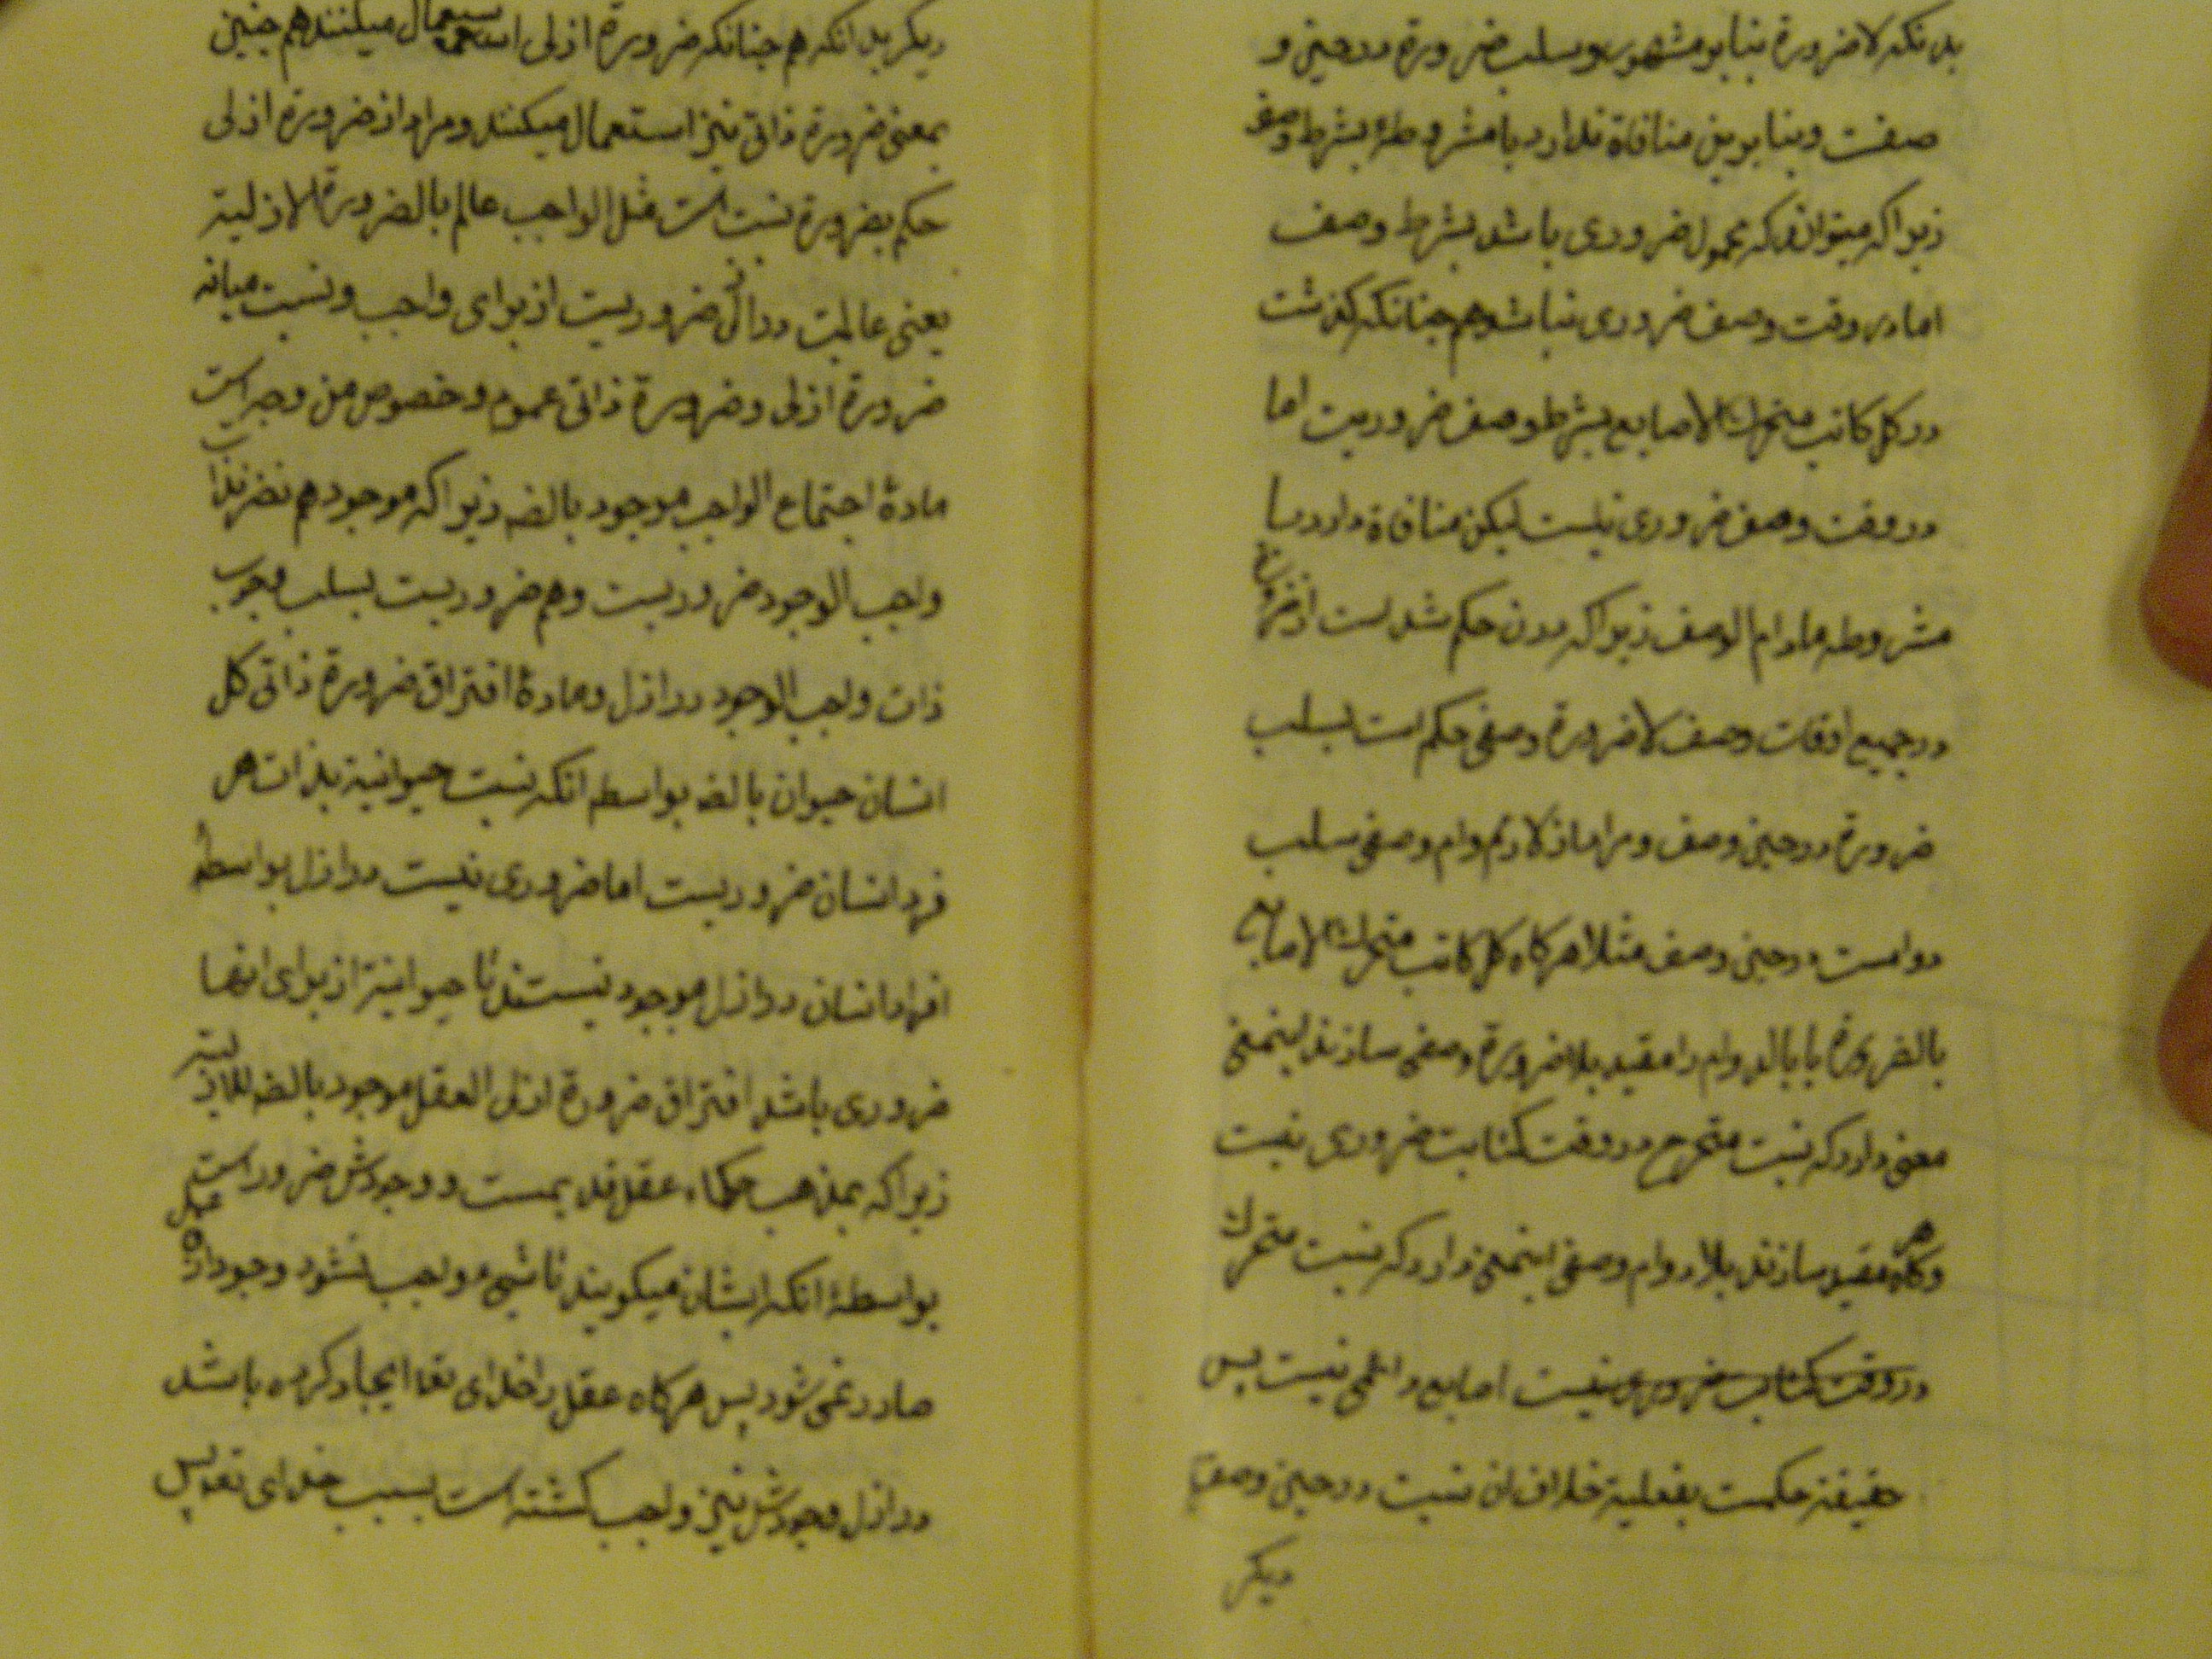 بدنکه لا ضرورة بنابو مشهور و سلب ضرورة در حین و
صفت و بنابرین منافاة ندارد با مشروطه بشرط وصف
زیرا که میتواند که محمول ضروری باشد بشرط وصف
اما در وقت وصف ضروری نباشد هم چنانکه کذشت
در کل کاتب متحرك الاصابع بشرط وصف ضروریت اما
در وقت وصف ضروری نیست لیکن منافاة دارد با
مشروطه مادام الوصف زیرا که درن حکم شدست از ضرورة
در جمیع اوقات وصف لا ضرورة وصفی حکم است بسلب
ضرورة در حین وصف و مراد از لا دوام وصفی سلب
دوامست در حین وصف مثلا هرکاه کل کاتب متحرك الاصابع
بالضرورة یا بالدوام را مقید بلا ضرورة وصفی سازند اینمعنی
معنی دارد که نسبت متحرج در وقت کتابت ضروری نیست
و هرکاه مقید سازند بلا دوام وصفی اینمعنی دارد که نسبت متحرك
در وقت کتابت ضروری نیست اصابع دائمی نیست پس
حقیقة حکمست بفعلیة خلاف ان نسبت در حین وصف
دیکر
دیکر بدانکه هم چنانکه ضرورة ازلی استعمال میکنند هم چنین
بمعنی ضرورة ذاتی نیز استعمال میکنند و مراد از ضرورة ازلی
حکم بضرورة نسبت است مثل الواجب عالم بالضرورة الازلیة
یعنی عالمیت در ازل ضروریست از برای واجب و نسبت میانه
ضرورة ازلی و ضرورة ذاتی عموم و خصوص من وجه است
مادۀ اجتماع الواجب موجود بالضه زیرا که موجود هم نضر بذات
واجب الوجود ضروریست و هم ضروریست بسلب وجوب
ذات واجب الوجود در ازل و مادۀ افتراق ضرورة ذاتی کل
انسان حیوان بالضه بواسطه انکه نسبت حیوانیة بذات هر
فرد انسان ضروریست اما ضروری نیست در ازل بواسطۀ
افراد انسان در ازل موجود نیستند تا حیوانیة از برای اینها
ضروری باشد افتراق ضرورة ازل العقل موجود بالضه للازلیة
زیرا که بمذهب حکماء عقل قدیمست و وجودش ضرور است
بواسطۀ انکه ایشان میکویند تا شیء واجب نشود وجود از
صادر نمی شود پس هرکاه عقل را خدای تعا ایجاد کرده باشد
در ازل وجودش نیز واجب کشته است بسبب خدای تعو پس